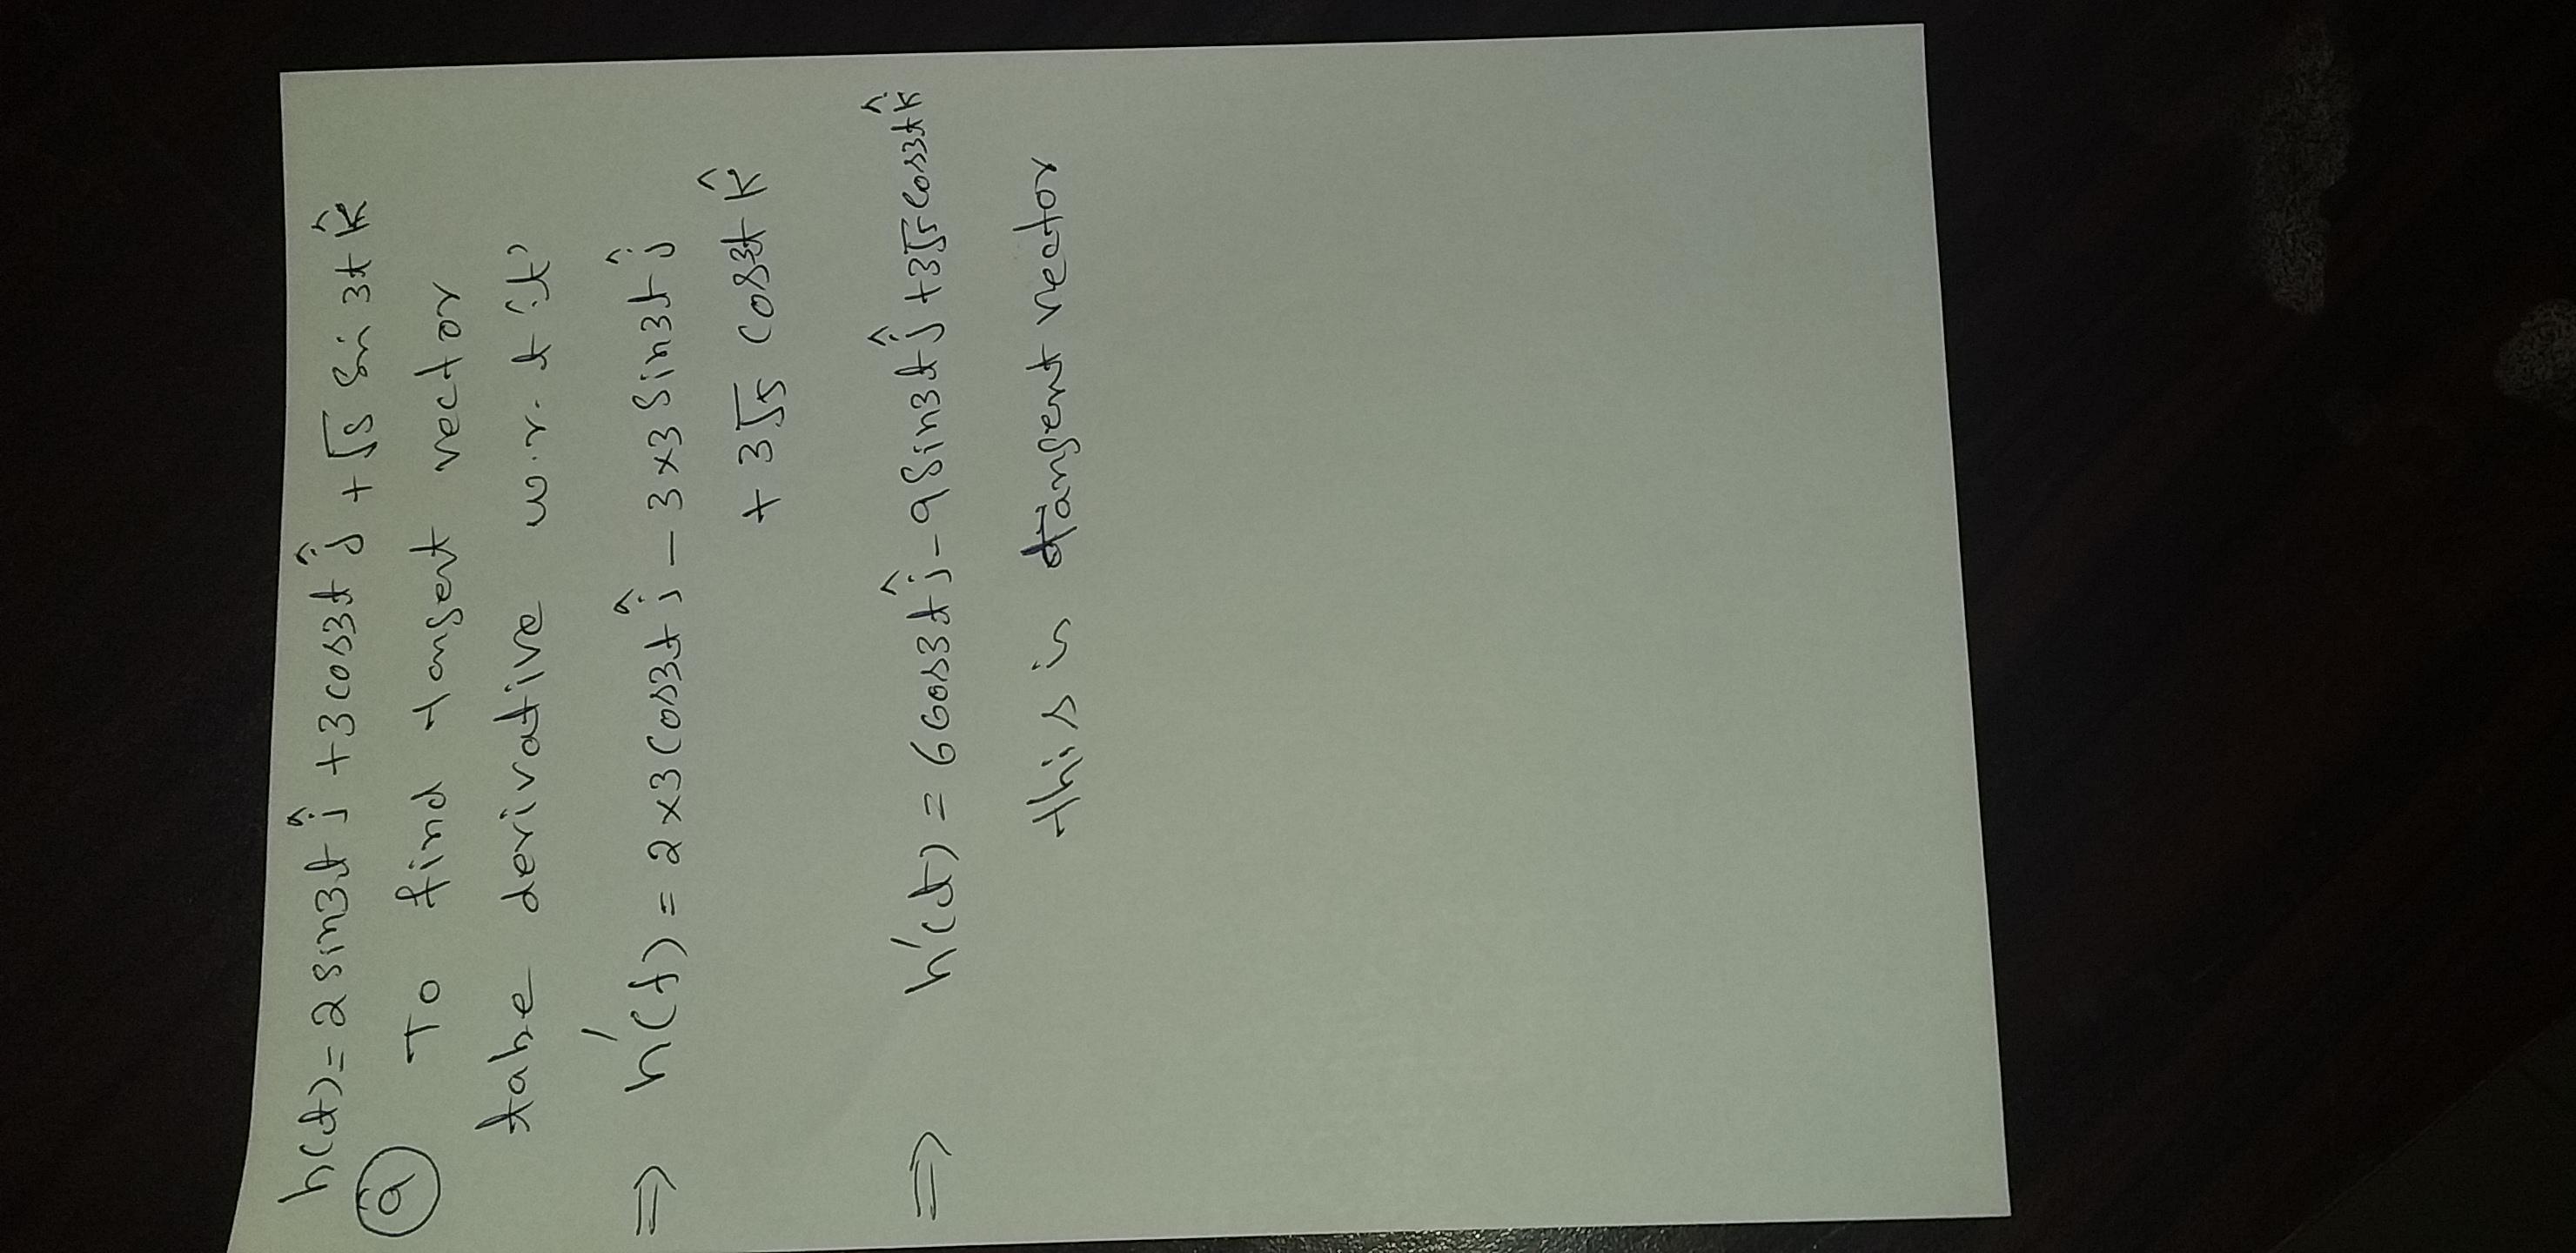 h(t) = 2 sin3t ĵ + 3cos3t ĵ + √5 sin 3t k̂
(a) To find tangent vector
take derivative w.r.t 't'
⇒ h'(t) = 2×3 cos3t ĵ − 3×3 sin3t ĵ
+ 3√5 cos3t k̂
⇒ h'(t) = 6cos3t ĵ − 9 sin3t ĵ + 3√5 cos3t k̂
this is tangent vector